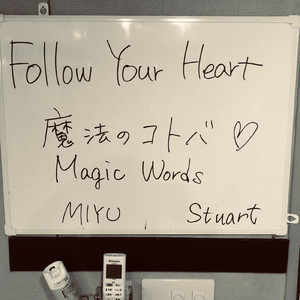 Follow Your Heart
魔法のコトバ♡
Magic Words
MIYU Stuart